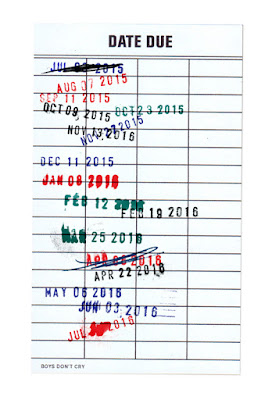 DATE DUE
JUL 03 2015
AUG 07 2015
SEP 11 2015
OCT 09, 2015
OCT 23 2015
NOV 2015
NOV 2015
DEC 11 2015
JAN 08 2016
FEB 12 2016
FEB 19 2016
MAR 25 2016
APR 2016
APR 22 2016
MAY 06 2016
JUN 03 2016
JUL 2016
BOYS DON'T CRY